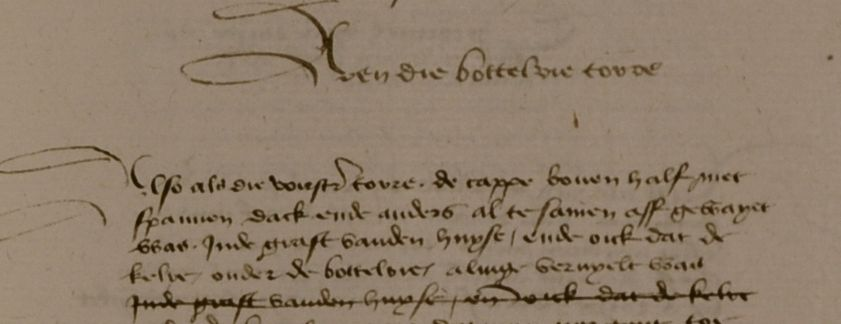 Aen die bottelrie torre
Also als die vorstr torre. de cappe boven half met
spannen dack ende anders al te samen aff gewayet
was. Inde graft vanden huyse, ende oick dat de
kelre, onder de bottelrie, alinge vervuylt was
Inde graft vanden huyse, en oick dat de kelre